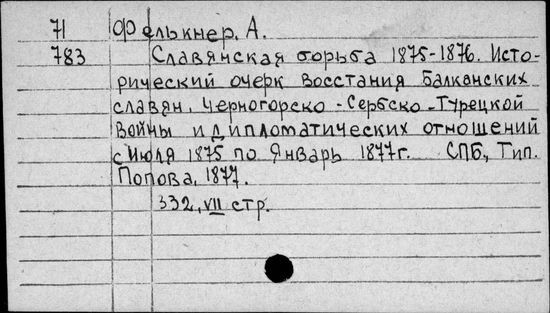 71 Фелькнер, А.
783 Славянская борьба 1875-1876. Исто-
рический очерк восстания Балканских
славян, Черногорско-Сербско-Турецкой
войны и дипломатических отношений
с июля 1875 по Январь 1877 г. СПБ, Тип.
Попова, 1877.
332, VII стр.